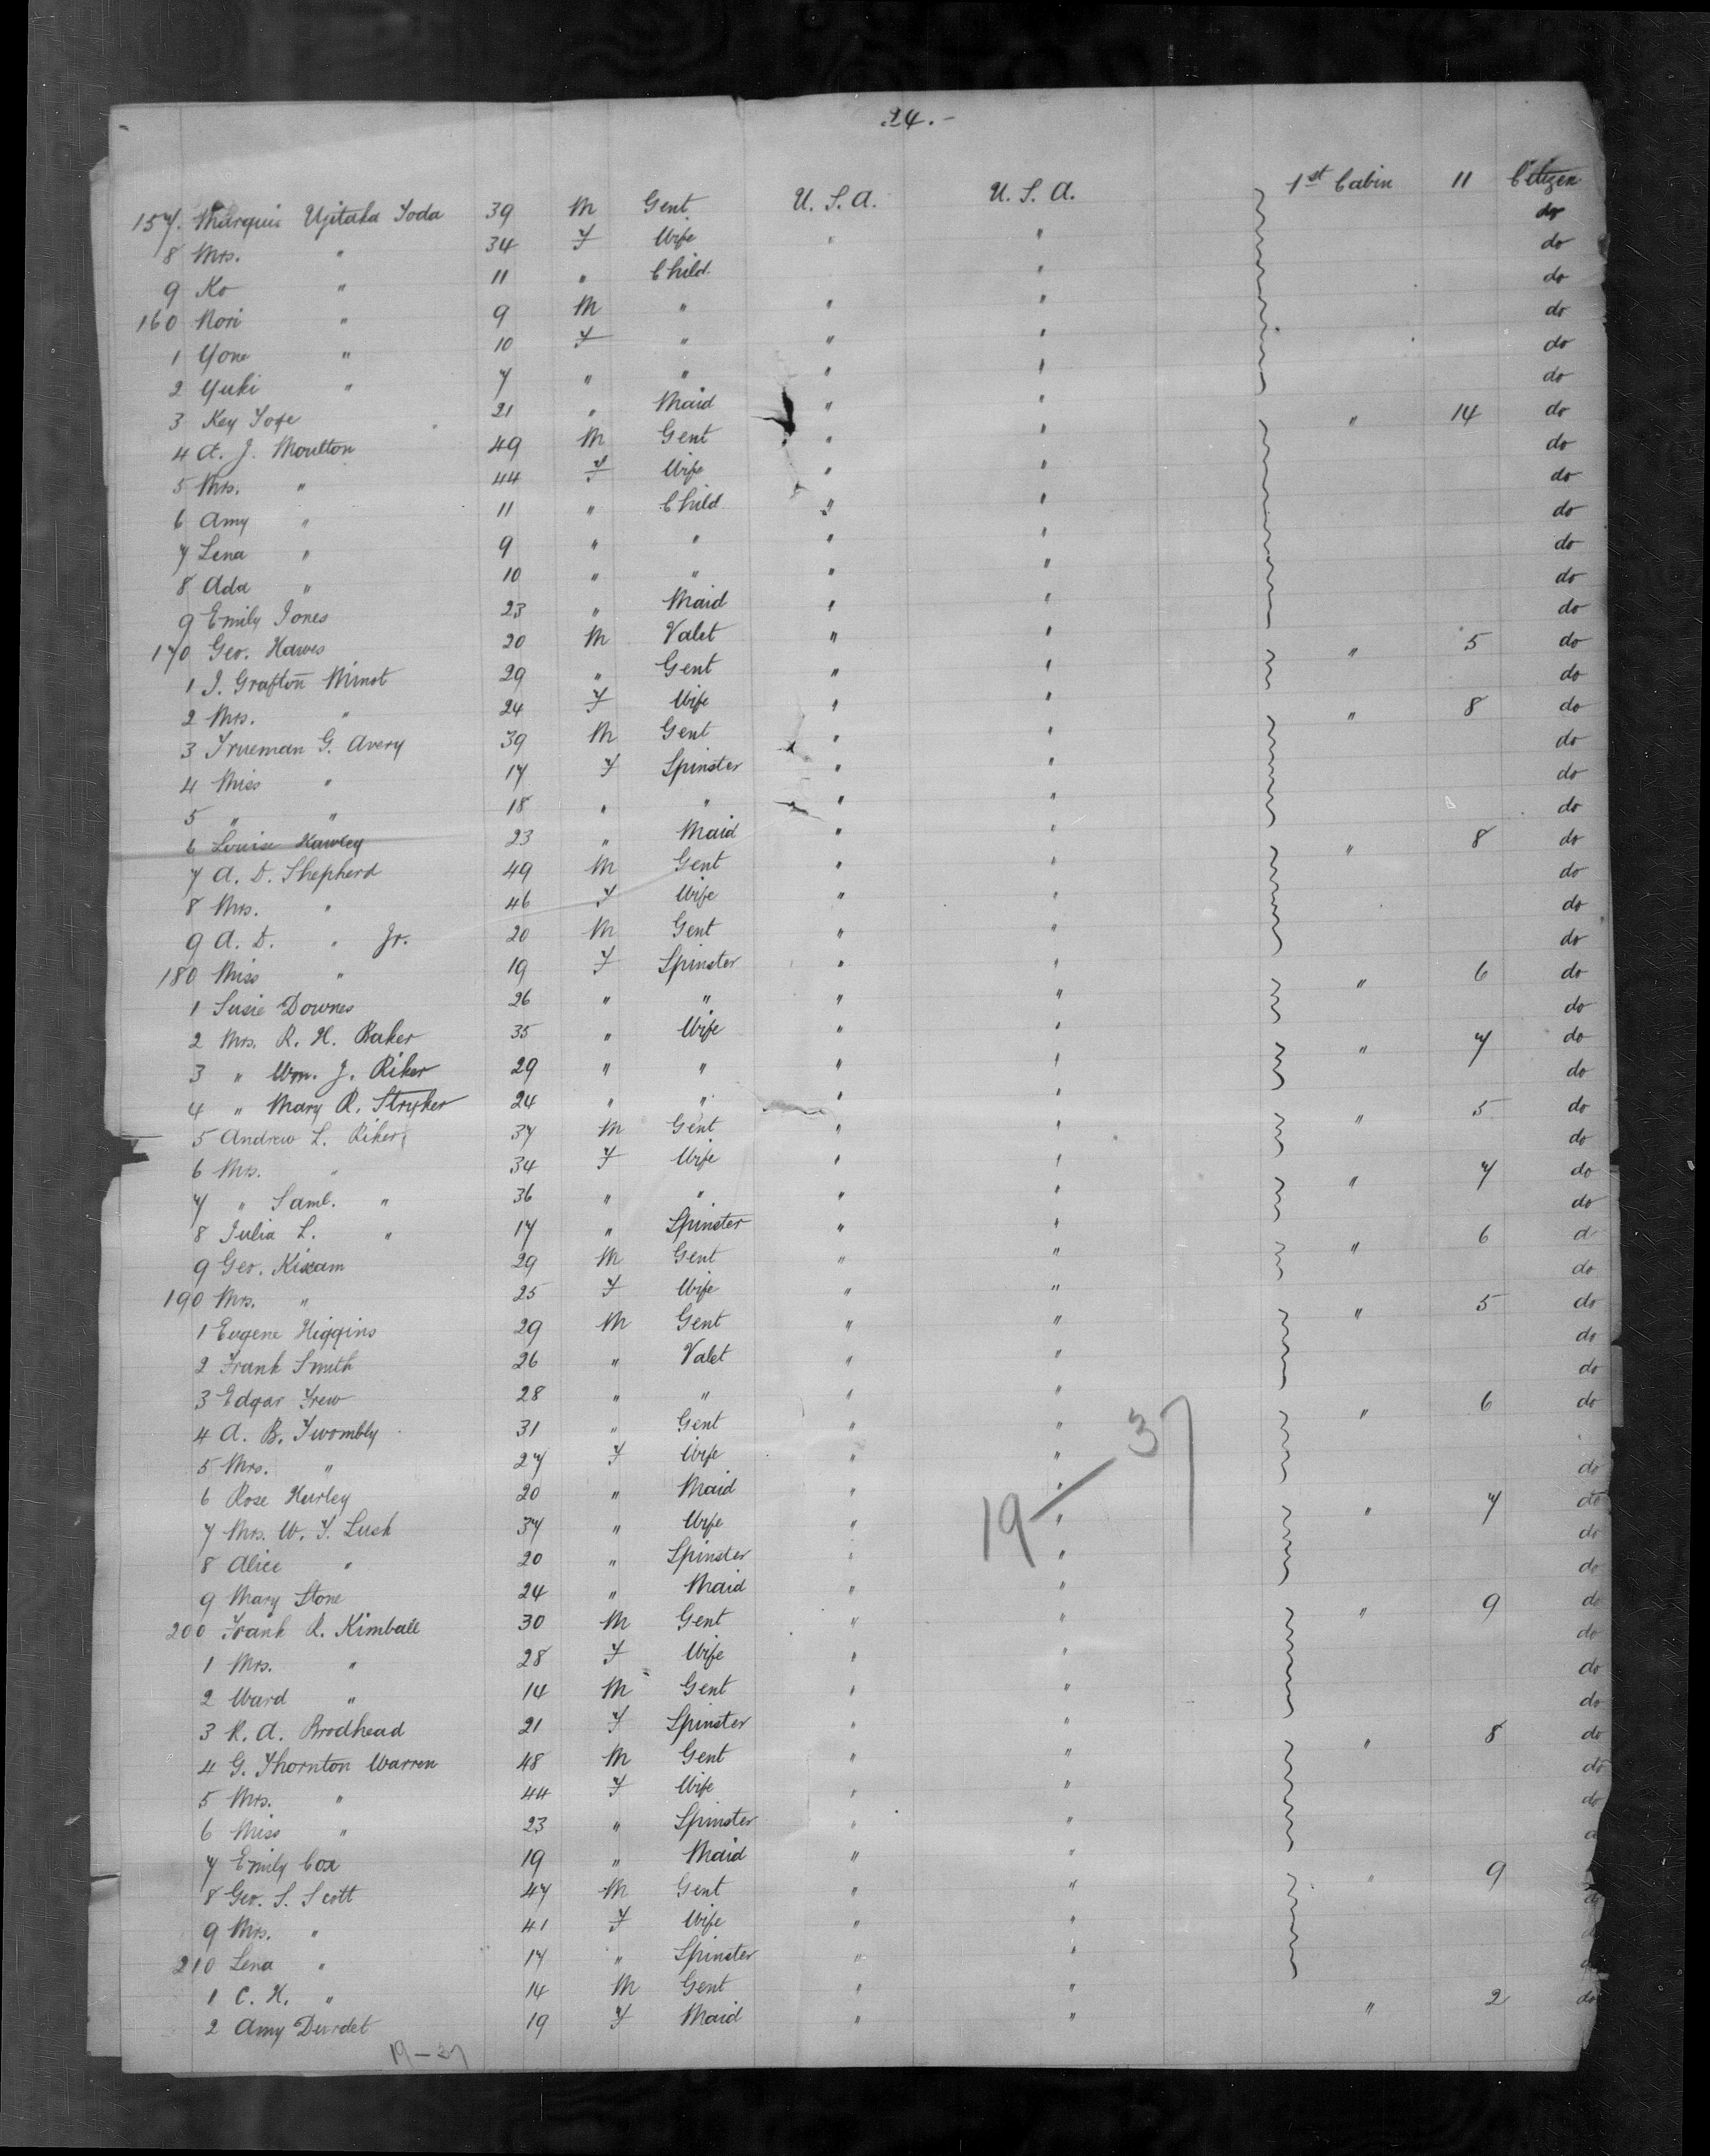 24.-
157. Marquis Ujitaka Toda 39 M Gent U. S. A. U. S. A. 1st Cabin 11 Citizen
8 Mrs. " 34 F Wife " " do
9 Ko " 11 " Child " do
160 Nori " 9 M " " " do
1 Yone " 10 F " " " do
2 Yuki " 7 " " " " do
3 Key Toye 21 " Maid " " do
4 A. J. Moulton 49 M Gent " " " 14 do
5 Mrs. " 44 F Wife " " do
6 Amy " 11 " Child " " do
7 Lena " 9 " " " " do
8 Ada " 10 " " " " do
9 Emily Jones 23 " Maid " " do
170 Geo. Hawes 20 M Valet " " do
1 J. Grafton Minot 29 " Gent " " " 5 do
2 Mrs. " 24 F Wife " " do
3 Trueman G. Avery 39 M Gent " " " 8 do
4 Miss " 17 F Spinster " " do
5 " " 18 " " " " do
6 Louise Hawley 23 " Maid " " do
7 A. D. Shepherd 49 M Gent " " " 8 do
8 Mrs. " 46 F Wife " " do
9 A. D. " Jr. 20 M Gent " " do
180 Miss " 19 F Spinster " " do
1 Susie Downes 26 " " " " " 6 do
2 Mrs. R. H. Baker 35 " Wife " " do
3 " Wm. J. Riker 29 " " " " " 7 do
4 " Mary R. Stryker 24 " " " " do
5 Andrew L. Riker 37 M Gent " " " 5 do
6 Mrs. " 34 F Wife " " do
7 " Saml. " 36 " " " " " 7 do
8 Julia L. " 17 " Spinster " " do
9 Geo. Kissam 29 M Gent " " " 6 d
190 Mrs. " 25 F Wife " " do
1 Eugene Higgins 29 M Gent " " " 5 do
2 Frank Smith 26 " Valet " " do
3 Edgar Frew 28 " " " " do
4 A. B. Twombly 31 " Gent " " " 6 do
5 Mrs. " 27 F Wife " "
6 Rose Hurley 20 " Maid " " do
7 Mrs. W. T. Lusk 37 " Wife " " " 7 do
8 Alice " 20 " Spinster " " do
9 Mary Stone 24 " Maid " " do
200 Frank R. Kimball 30 M Gent " " " 9 do
1 Mrs. " 28 F Wife " " do
2 Ward " 14 M Gent " " do
3 R. A. Brodhead 21 F Spinster " " do
4 G. Thornton Warren 48 M Gent " " " 8 do
5 Mrs. " 44 F Wife " " do
6 Miss " 23 " Spinster " " do
7 Emily Cox 19 " Maid " " d
8 Geo. S. Scott 47 M Gent " " " 9 do
9 Mrs. " 41 F Wife " " d
210 Lena " 17 " Spinster " " d
1 C. H. " 14 M Gent " "
2 Amy Durdet 19 F Maid " " " 2 do
19-37
19-37